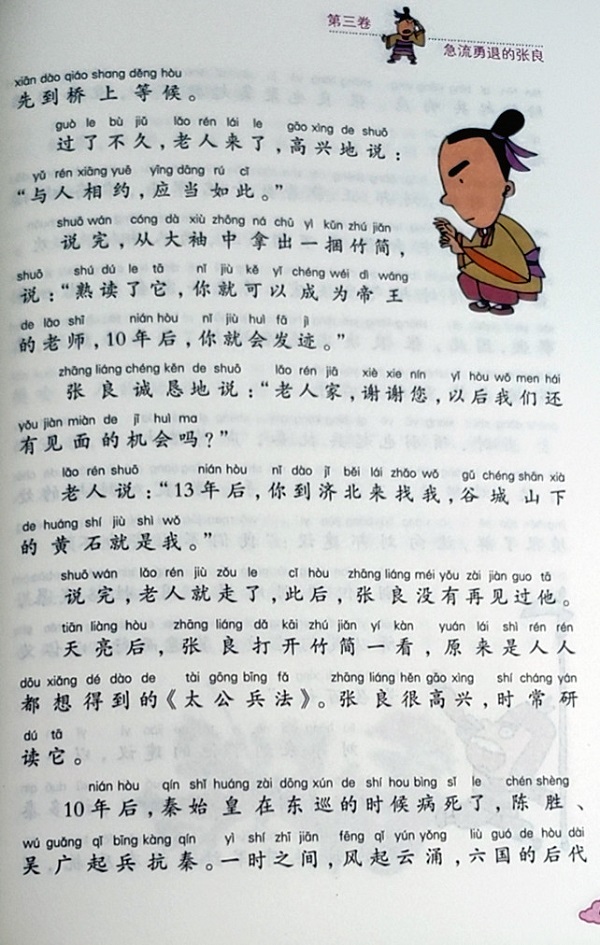 第三卷
急流勇退的张良
xiān dào qiáo shang děng hòu
先到桥上等候。
guò le bù jiǔ lǎo rén lái le gāo xìng de shuō
过了不久，老人来了，高兴地说：
yǔ rén xiāng yuē yīng dāng rú cǐ
“与人相约，应当如此。”
shuō wán cóng dà xiù zhōng ná chū yì kǔn zhú jiǎn
说完，从大袖中拿出一捆竹简，
shuō shú dú le tā nǐ jiù kě yǐ chéng wéi dì wáng
说：“熟读了它，你就可以成为帝王
de lǎo shī nián hòu nǐ jiù huì fā jì
的老师，10年后，你就会发迹。”
zhāng liáng chéng kěn de shuō lǎo rén jiā xiè xie nín yǐ hòu wǒ men hái
张良诚恳地说：“老人家，谢谢您，以后我们还
yǒu jiàn miàn de jī huì ma
有见面的机会吗？”
lǎo rén shuō nián hòu nǐ dào jǐ běi lái zhǎo wǒ gǔ chéng shān xià
老人说：“13年后，你到济北来找我，谷城山下
de huáng shí jiù shì wǒ
的黄石就是我。”
shuō wán lǎo rén jiù zǒu le cǐ hòu zhāng liáng méi yǒu zài jiàn guo tā
说完，老人就走了，此后，张良没有再见过他。
tiān liàng hòu zhāng liáng dǎ kāi zhú jiǎn yí kàn yuán lái shì rén rén
天亮后，张良打开竹简一看，原来是人人
dōu xiǎng dé dào de tài gōng bīng fǎ zhāng liáng hěn gāo xìng shí cháng yán
都想得到的《太公兵法》。张良很高兴，时常研
dú tā
读它。
nián hòu qín shǐ huáng zài dōng xún de shí hou bìng sǐ le chén shèng
10年后，秦始皇在东巡的时候病死了，陈胜、
wú guǎng qǐ bīng kàng qín yì shí zhī jiān fēng qǐ yún yǒng liù guó de hòu dài
吴广起兵抗秦。一时之间，风起云涌，六国的后代